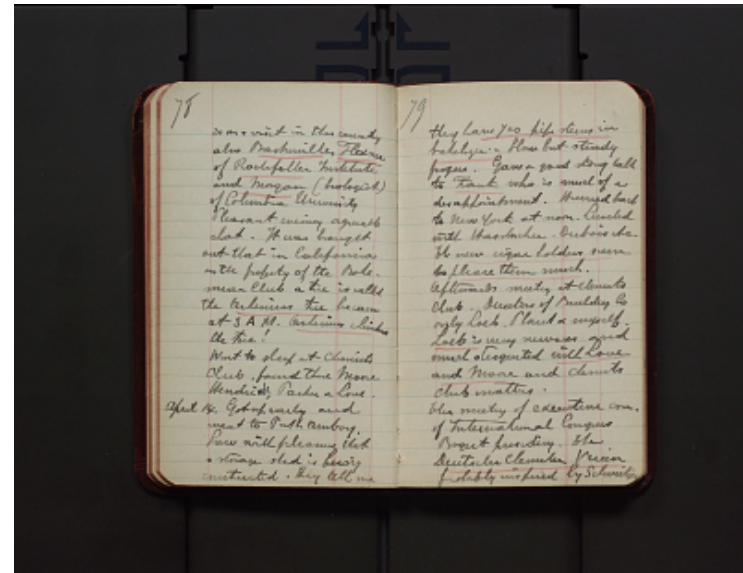 78
is on a visit in this country
also Baskerville, Flexner
of Rockefeller Institute
and Morgan (biologist)
of Columbia University
Pleasant evening agreeable
chat. It was brought
out that in California
on the property of the Bohe-
mian Club a tree is called
the Arrhenius tree because
at 3 A.M. Arrhenius climbed
the tree!
Went to sleep at Chemists
Club. found there Moore
Hendrick, Parker & Love.
April 14. Got up early and
went to Perth Amboy.
Saw with pleasure that
a storage shed is being
constructed. They tell me
79
they have 420 pipe stems in
bakelizer. Slow but steady
progress. Gave a good long talk
to Frank who is much of a
disappointment. Hurried back
to New York at noon. Lunched
with Hasslacher. Dubois etc.
The new cigar holders seem
to please them much.
Afterwards meeting at Chemists
Club. Directors of Building Co
only Loeb. Plaut & myself.
Loeb is very nervous and
much disgusted with Love
and Moore and chemists
club matters.
Then meeting of executive com.
of International Congress
Bogert presiding. The
Deutscher Chemiker Verein
probably inspired by